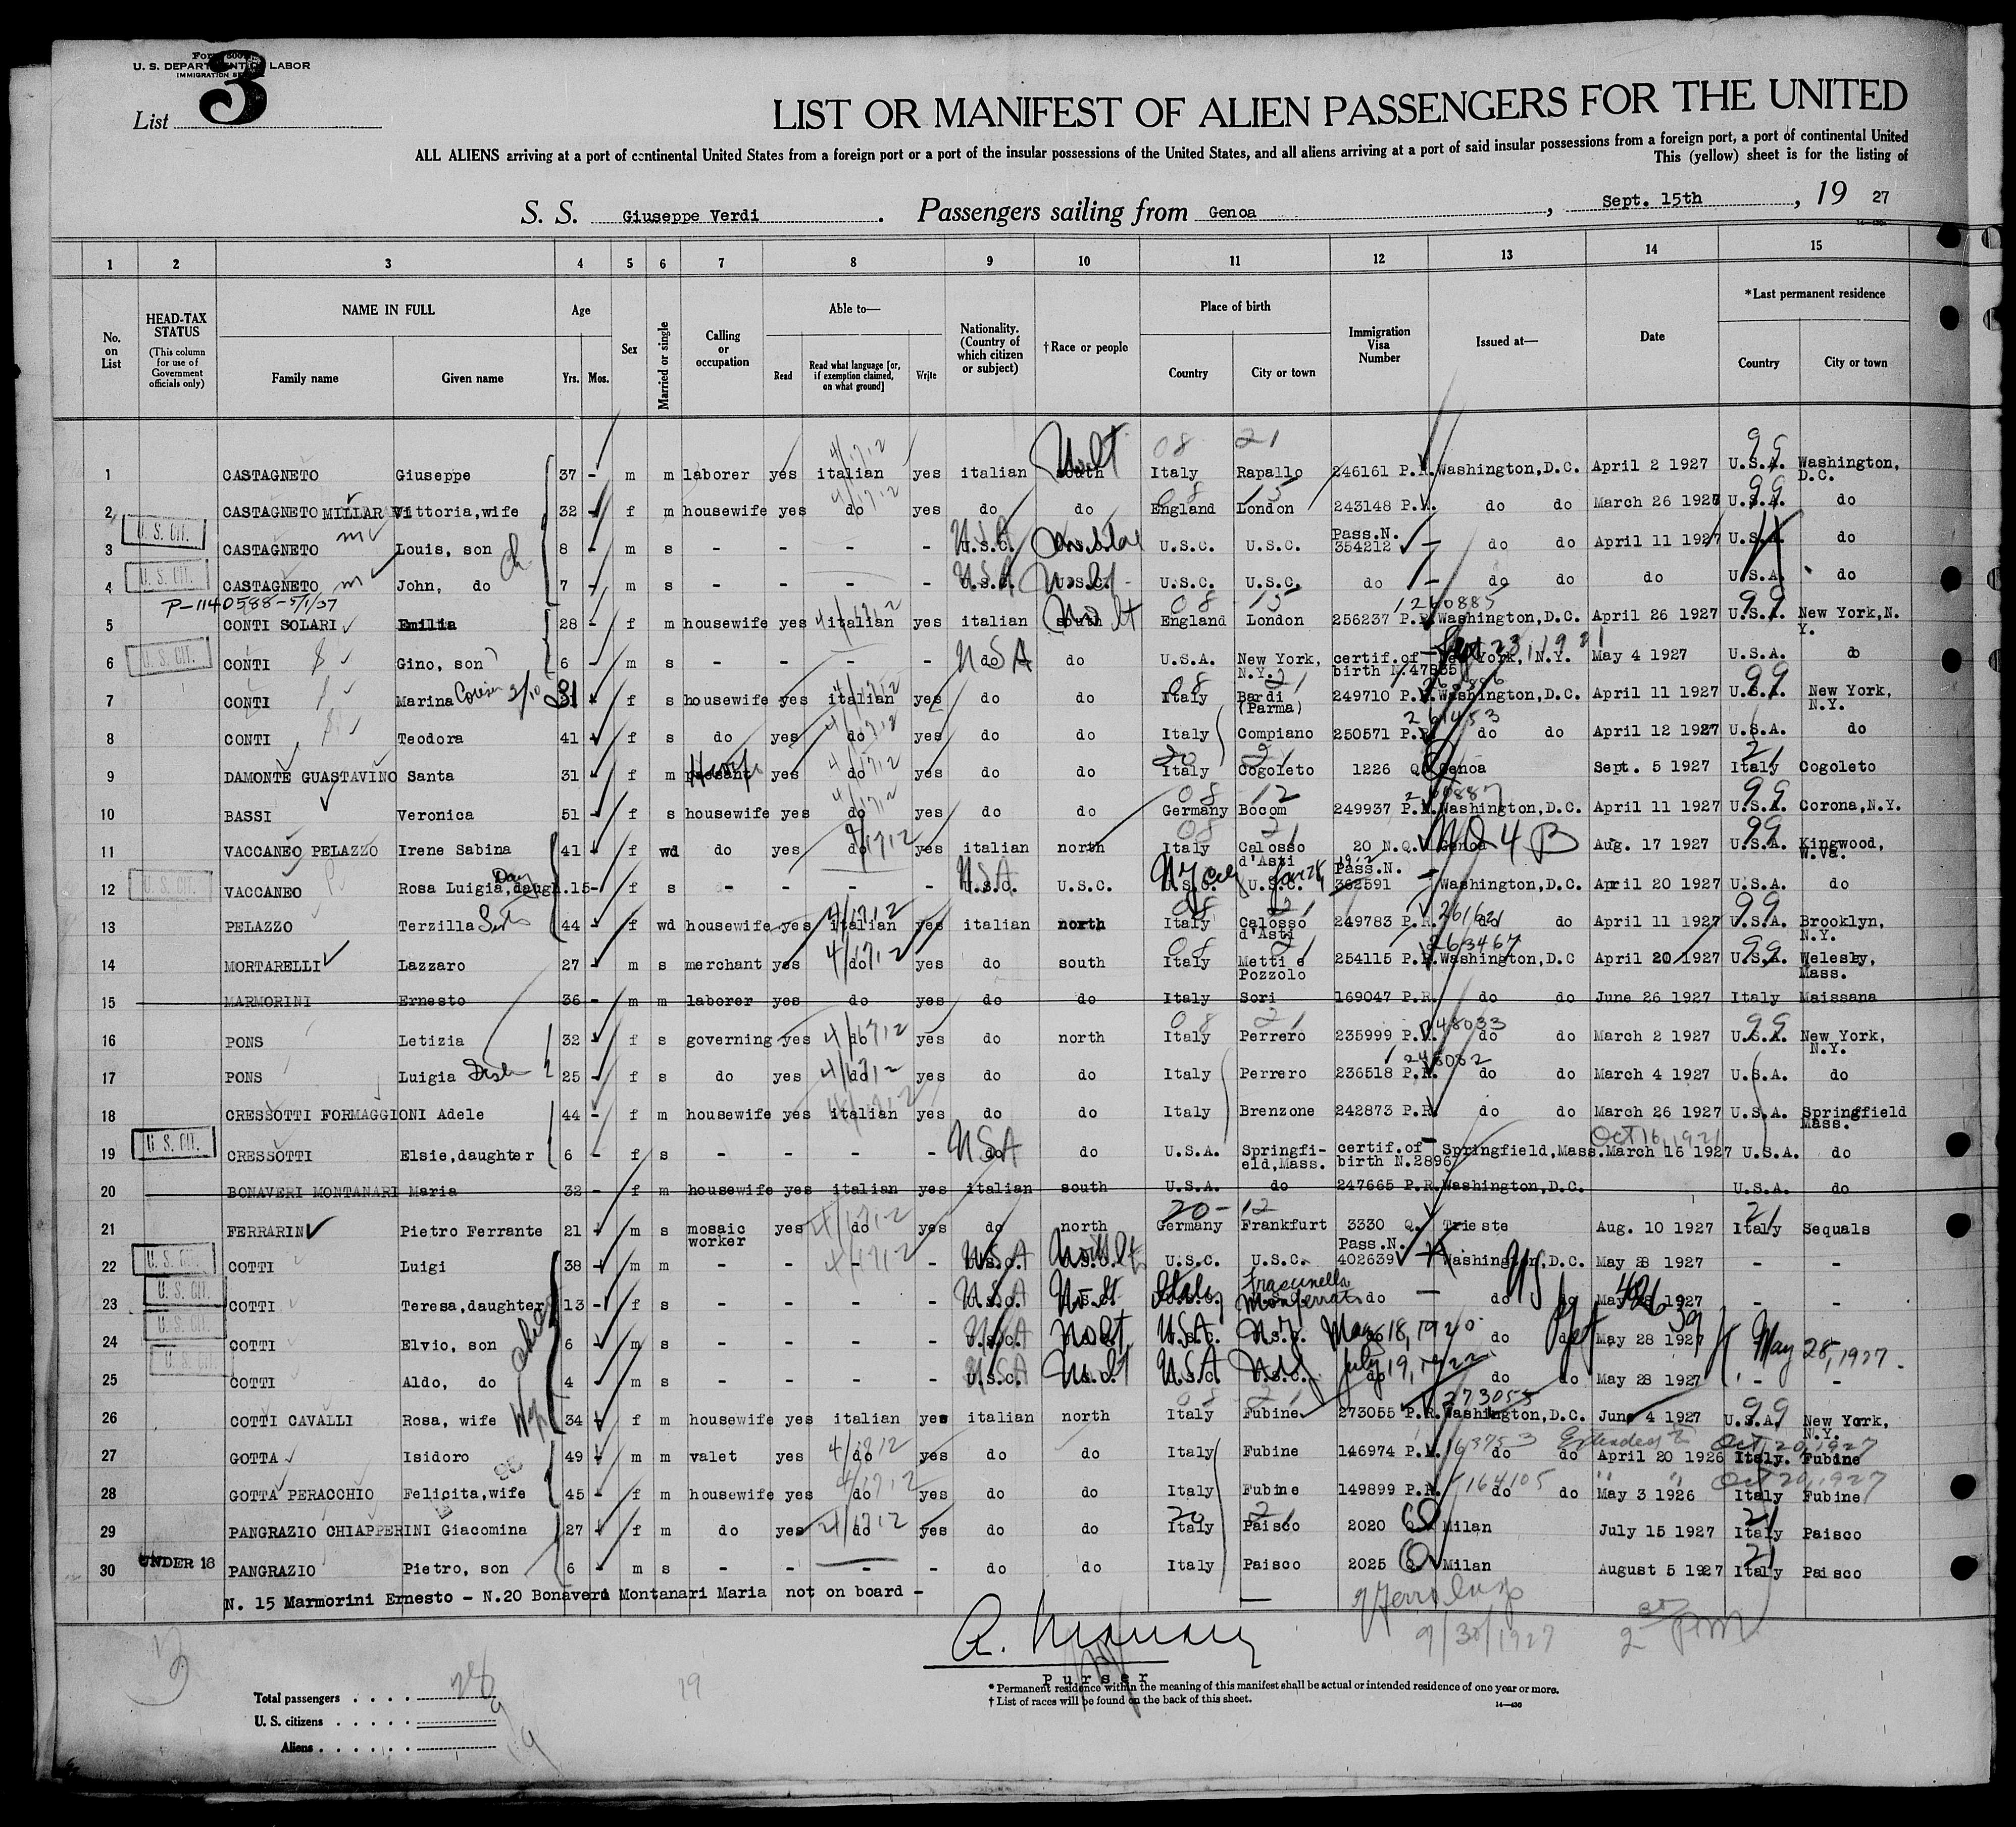 Form 500
U. S. DEPARTMENT OF LABOR
IMMIGRATION SERVICE
List 3
LIST OR MANIFEST OF ALIEN PASSENGERS FOR THE UNITED
ALL ALIENS arriving at a port of continental United States from a foreign port or a port of the insular possessions of the United States, and all aliens arriving at a port of said insular possessions from a foreign port, a port of continental United
This (yellow) sheet is for the listing of
S. S. Giuseppe Verdi . Passengers sailing from Genoa , Sept. 15th , 19 27
1 2 3 4 5 6 7 8 9 10 11 12 13 14 15
No. on List
HEAD-TAX STATUS
(This column for use of Government officials only)
NAME IN FULL
Family name Given name
Age
Yrs. Mos.
Sex
Married or single
Calling or occupation
Able to—
Read
Read what language [or, if exemption claimed, on what ground]
Write
Nationality. (Country of which citizen or subject)
†Race or people
Place of birth
Country City or town
Immigration Visa Number
Issued at—
Date
*Last permanent residence
Country City or town
1 CASTAGNETO Giuseppe 37 - m m laborer yes italian yes italian south Italy Rapallo 246161 P.R. Washington,D.C. April 2 1927 U.S.A. Washington, D.C.
2 CASTAGNETO MILLAR Vittoria,wife 32 - f m housewife yes do yes do do England London 243148 P.R. do do March 26 1927 U.S.A. do
3 U. S. CIT. CASTAGNETO Louis, son 8 - m s - - - - U.S.C. U.S.C. U.S.C. Pass.N. 354212 - do do April 11 1927 U.S.A. do
4 U. S. CIT. CASTAGNETO John, do 7 - m s - - - - U.S.C. U.S.C. U.S.C. U.S.C. do - do do do U.S.A. do
P-1140588-5/1/37
5 CONTI SOLARI Emilia 28 - f m housewife yes italian yes italian south England London 256237 P.R. Washington,D.C. April 26 1927 U.S.A. New York,N.Y.
6 U. S. CIT. CONTI Gino, son 6 - m s - - - - do USA do U.S.A. New York, N.Y. certif.of birth N.47865 New York, N.Y. May 4 1927 U.S.A. do
7 CONTI Marina Cousin 31 - f s housewife yes italian yes do do Italy Bardi (Parma) 249710 P.R. Washington,D.C. April 11 1927 U.S.A. New York, N.Y.
8 CONTI Teodora 41 - f s do yes do yes do do Italy Compiano 250571 P.R. 261453 do do April 12 1927 U.S.A. do
9 DAMONTE GUASTAVINO Santa 31 - f m peasant Hwife yes do yes do do Italy Cogoleto 1226 Q. Genoa Sept. 5 1927 Italy Cogoleto
10 BASSI Veronica 51 - f s housewife yes do yes do do Germany Bocom 249937 P.R. Washington,D.C. April 11 1927 U.S.A. Corona,N.Y.
11 VACCANEO PELAZZO Irene Sabina 41 - f wd do yes do yes italian north Italy Calosso d'Asti 20 N.Q. Genoa Aug. 17 1927 U.S.A. Kingwood, W.Va.
12 U. S. CIT. VACCANEO Rosa Luigia,daugh. 15 - f s - - - - U.S.C. USA U.S.C. U.S.C. U.S.C. Pass.N. 362591 - Washington,D.C. April 20 1927 U.S.A. do
13 PELAZZO Terzilla 44 - f wd housewife yes italian yes italian north Italy Calosso d'Asti 249783 P.R. do do April 11 1927 U.S.A. Brooklyn, N.Y.
14 MORTARELLI Lazzaro 27 - m s merchant yes do yes do south Italy Metti e Pozzolo 254115 P.R. 263467 Washington,D.C April 20 1927 U.S.A. Welesley, Mass.
15 MARMORINI Ernesto 36 - m m laborer yes do yes do do Italy Sori 169047 P.R. do do June 26 1927 Italy Maissana
16 PONS Letizia 32 - f s governing yes do yes do north Italy Perrero 235999 P.R. 248033 do do March 2 1927 U.S.A. New York, N.Y.
17 PONS Luigia 25 - f s do yes do yes do do Italy Perrero 236518 P.R. 248032 do do March 4 1927 U.S.A. do
18 CRESSOTTI FORMAGGIONI Adele 44 - f m housewife yes italian yes do do Italy Brenzone 242873 P.R. do do March 26 1927 U.S.A. Springfield Mass.
19 U. S. CIT. CRESSOTTI Elsie,daughter 6 - f s - - - - do USA do U.S.A. Springfi-eld,Mass. certif.of birth N.2896 - Springfield,Mass. Oct 16, 1921 March 16 1927 U.S.A. do
20 BONAVERI MONTANARI Maria 32 - f m housewife yes italian yes italian south U.S.A. do 247665 P.R. Washington,D.C. U.S.A. do
21 FERRARIN Pietro Ferrante 21 - m s mosaic worker yes do yes do north Germany Frankfurt 3330 Q. Trieste Aug. 10 1927 Italy Sequals
22 U. S. CIT. COTTI Luigi 38 - m m - - - - U.S.C. USA U.S.C. U.S.C. U.S.C. Pass.N. 402639 Washington,D.C. May 28 1927 - -
23 U. S. CIT. COTTI Teresa,daughter 13 - f s - - - - U.S.C. USA Italy Frassinello Monferrato do - do do May 28 1927 - -
24 U. S. CIT. COTTI Elvio, son 6 - m s - - - - U.S.C. USA U.S.C. U.S.C. May 18, 1920 do do May 28 1927 May 28, 1927.
25 U. S. CIT. COTTI Aldo, do 4 - m s - - - - U.S.C. USA USA U.S.C. do July 19, 1922 do do May 28 1927 - -
26 COTTI CAVALLI Rosa, wife 34 - f m housewife yes italian yes italian north Italy Fubine 273055 P.R. 273055 Washington,D.C. June 4 1927 U.S.A. New York, N.Y.
27 GOTTA Isidoro 49 - m m valet yes do yes do do Italy Fubine 146974 P.R. do do Extended to April 20 1926 Oct 20, 1927 Italy. Fubine
28 GOTTA PERACCHIO Felicita,wife 45 - f m housewife yes do yes do do Italy Fubine 149899 P.R. 164105 do do May 3 1926 Oct 20, 1927 Italy Fubine
29 PANGRAZIO CHIAPPERINI Giacomina 27 - f m do yes do yes do do Italy Paisco 2020 Q. Milan July 15 1927 Italy Paisco
30 UNDER 16 PANGRAZIO Pietro, son 6 - m s - - - - do do Italy Paisco 2025 Q. Milan August 5 1927 Italy Paisco
N. 15 Marmorini Ernesto - N.20 Bonaveri Montanari Maria not on board -
9/30/1927
Purser
* Permanent residence within the meaning of this manifest shall be actual or intended residence of one year or more.
† List of races will be found on the back of this sheet.
14—430
Total passengers . . . . 28
U. S. citizens . . . . . 9
Aliens . . . . . . 19